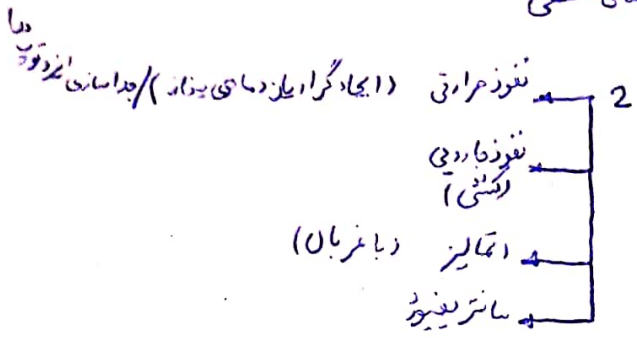 2 نفوذ حرارتی (ایجاد گرادیان دمای بذار) / جداسازی ایزوتوپ
نفوذ جاروبی
(کششی)
اتمالیز (با غربال)
سانتریفیوژ